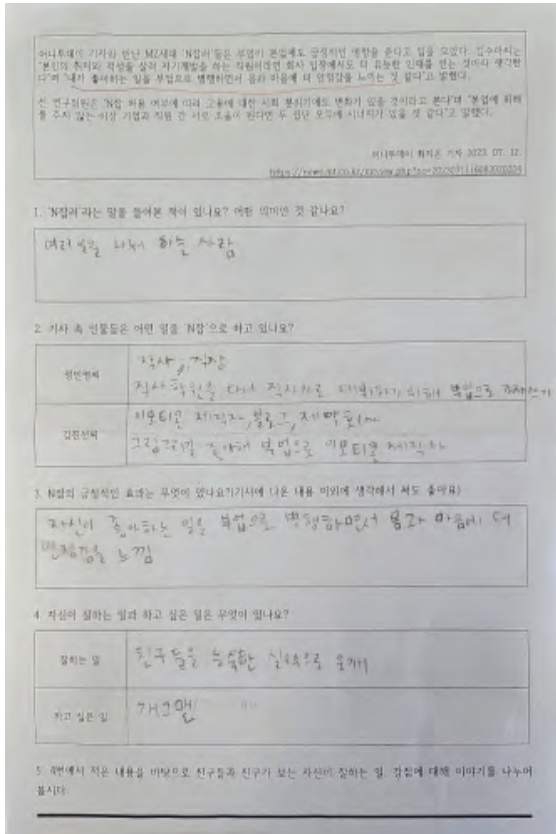 머니투데이 기자와 만난 MZ세대 'N잡러'들은 부업이 본업에도 긍정적인 영향을 준다고 입을 모았다. 김수아씨는
"본인의 취미와 적성을 살려 자기계발을 하는 직원이라면 회사 입장에서도 더 유능한 인재를 얻는 것이라 생각한
다"며 "내가 좋아하는 일을 부업으로 병행하면서 몸과 마음에 더 안정감을 느끼는 것 같다"고 말했다.
전 연구위원은 "N잡 허용 여부에 따라 고용에 대한 사회 분위기에도 변화가 있을 것이라고 본다"며 "본업에 피해
를 주지 않는 이상 기업과 직원 간 서로 조율이 된다면 두 집단 모두에 시너지가 있을 것 같다"고 말했다.
머니투데이 최지은 기자 2023. 07. 12.
1. 'N잡러'라는 말을 들어본 적이 있나요? 어떤 의미인 것 같나요?
여러 일을 나눠 하는 사람
2. 기사 속 인물들은 어떤 일을 'N잡'으로 하고 있나요?
직장
부업으로
김진선씨
이모티콘 제작자, 블로그,
그림그리길 좋아해 부업으로 이모티콘 제작
3. N잡의 긍정적인 효과는 무엇이 있나요?(기사에 나온 내용 이외에 생각해서 써도 좋아요)
자신이 좋아하는 일을 부업으로 병행하면서 몸과 마음에 더
안정감을 느낌
4. 자신이 잘하는 일과 하고 싶은 일은 무엇이 있나요?
잘하는 일
친구들을 능숙한 실력으로 웃게
하고 싶은 일
개그맨
5. 4번에서 적은 내용을 바탕으로 친구들과 친구가 보는 자신이 잘하는 일, 강점에 대해 이야기를 나누어
봅시다.